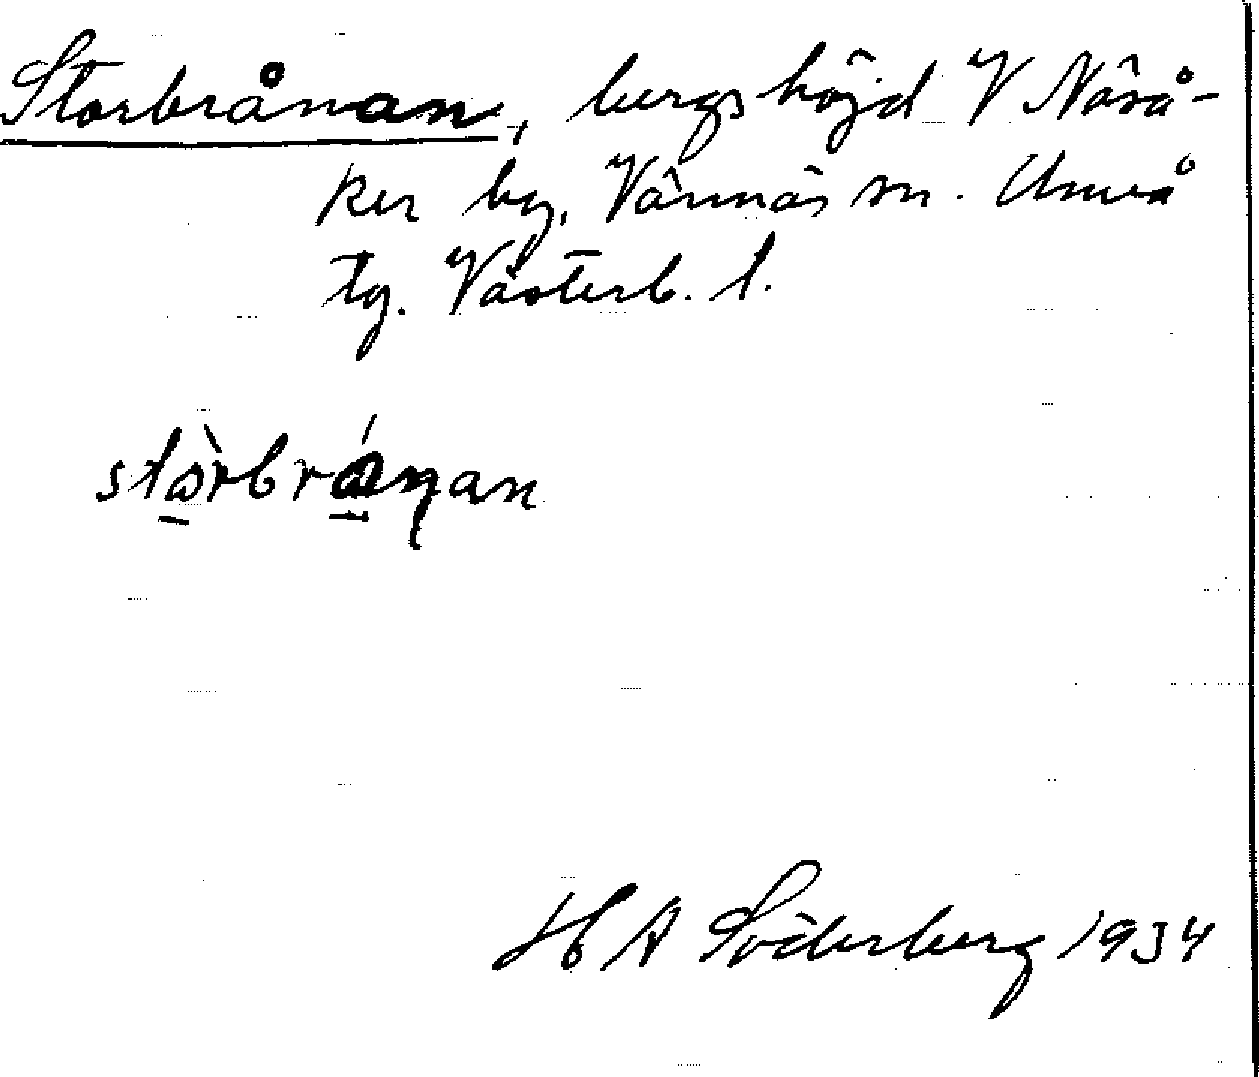 Storbrånan, bergshöjd V Näså-
ker by, Vännäs sn. Umeå
tg. Västerb. l.
stòrbránan
H A Söderberg 1934